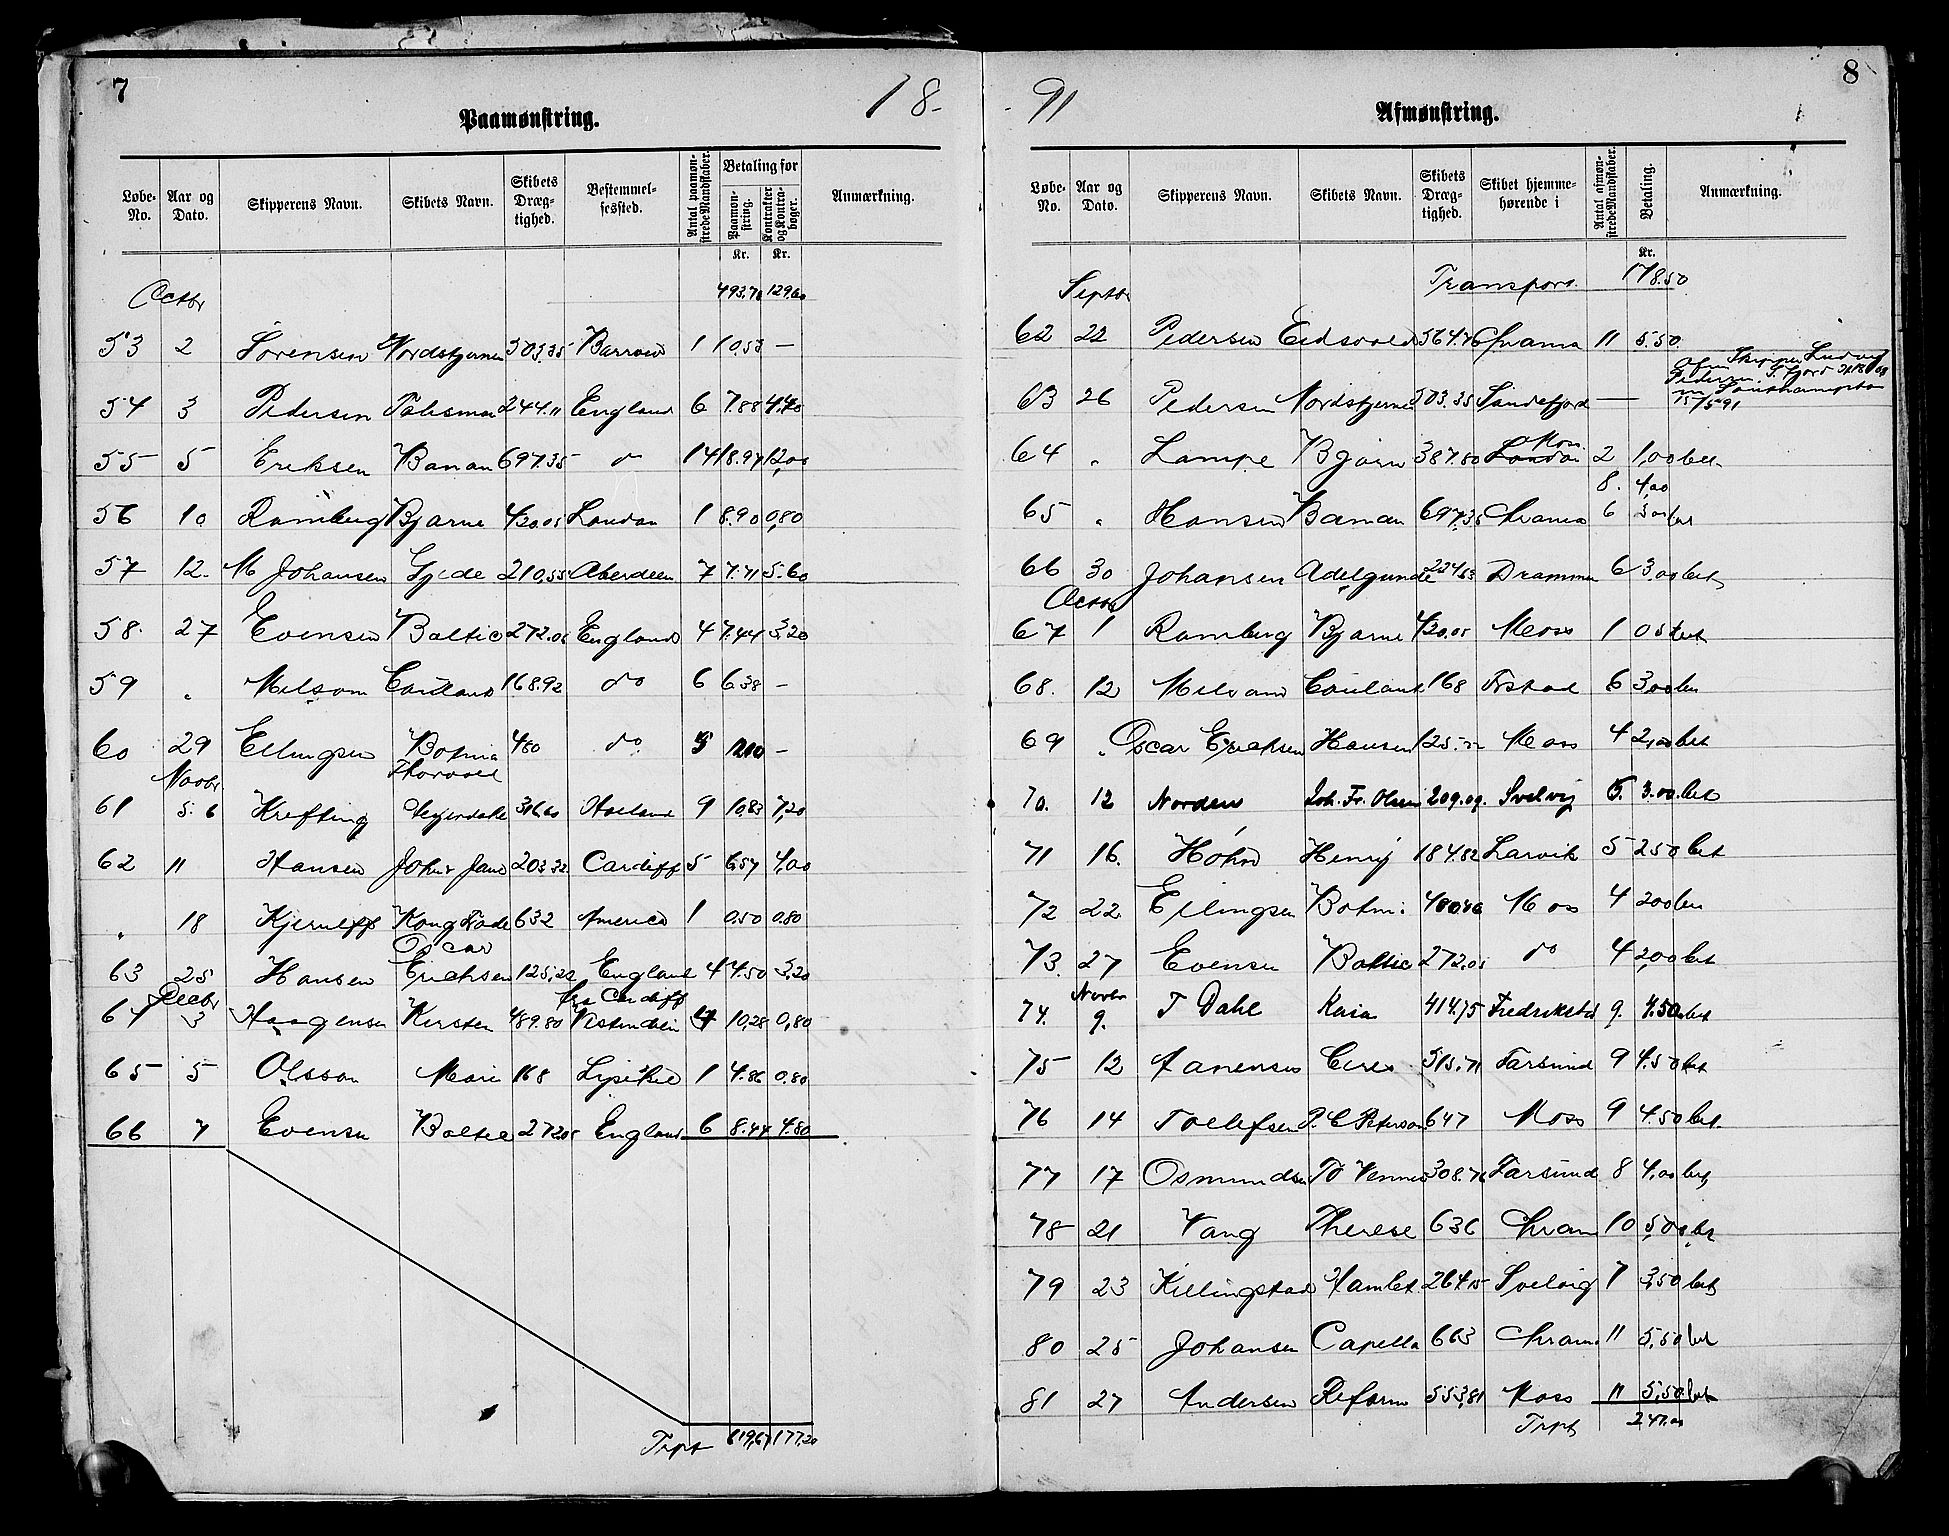 7
18-
Paamønstring.
Løbe-No. Aar og Dato. Skipperens Navn. Skibets Navn. Skibets Dræg-tighed. Bestemmel-sessted. Antal paamøn-strede Mandskaber. Betaling for Paamøn-string. Kontrakter og Kontra-bøger. Anmærkning.
Kr. Kr.
Octbr 493.70 129.60
53 2 Sørensen Nordstjernen 503.35 Barrow 1 10.53 —
54 3 Pedersen Talisman 244.11 England 6 7.88 4.40
55 5 Eriksen Banan 697.35 do 14 18.97 12,00
56 10 Ramberg Bjarne 420.05 London 1 8.90 0,80
57 12. M Johansen Gjede 210.55 Aberdeen 7 7.71 5.60
58. 27 Evensen Baltic 272.05 England 4 7.44 3,20
59 " Melsom Courland 168.92 do 6 6.38 —
60 29 Ellingsen Botnia 480 do 5 12.10 —
Novbr Thorvald
61 5. 6 Krefting 316.60 Holland 9 10.83 7,20
62 11 Hansen John & Jane 203.32 Cardiff 5 6.57 4,00
" 18 Kjerulff Kong 632 America 1 0.50 0.80
Oscar
63 25 Hansen Erichsen 125,22 England 4 4.50 3,20
Decbr fra Cardiff
64 3 Haagensen Kirsten 489.80 Vestindien 4 10,28 0,80
65 5 Olsson Marie 168 Lysekil 1 4.86 0.80
66 7 Evensen Baltic 272.05 England 6 8.44 4.80
Trpt 619,67 177,20
8
-91
Afmønstring.
Løbe-No. Aar og Dato. Skipperens Navn. Skibets Navn. Skibets Dræg-tighed. Skibet hjemme-hørende i Antal afmøn-strede Mandskaber. Betaling. Anmærkning.
Kr.
Septbr Transport 178.50
62 22 Pedersen Eidsvold 564.76 Chrania 11 5.50
63 26 Pedersen Nordstjernen 503.35 Sandefjord — Skipper Ludvig Pedersen Southampton 15/5 91
64 " Lampe Bjørn 387.80 Moss 2 1,00 bet
8. 4,00
65 " Hansen Banan 697.35 Chrania 6 bet
66 30 Johansen Adelgunde 224.53 Drammen 6 3.00 bet
Octbr
67 1 Ramberg Bjarne 420.05 Moss 1 0.5 bet
68. 12 Melsom Courland 168 6 3,00 bet
69 " Oscar Erichsen Hansen 125.22 Moss 4 2,00 bet
70. 12 Norden Joh. Fr. Olsen 209.09. Svelvig 6. 3.00 bet
71 16. Høhn Henry 184.82 Larvik 5 2.50 bet
72 22 Ellingsen Botni: 480.46 Moss 4 2.00 bet
73. 27 Evensen Baltic 272.05 do 4 2,00 bet
Novbr
74. 9. T Dahl Kaia 414.75 Fredrikstad 9. 4.50 bet
75 12 Aanensen Ceres 515.71 Farsund 9 4.50 bet
76 14 Tollefsen P. C Peterson 647 Moss 9 4.50 bet.
77 17 Osmundsen To Venner 308.76 Farsund 8 4,00 bet
78 21 Vang Therese 636 Chrania 10 5,00 bet
79 23 Killingstad Hamlet 264.15 Svelvig 7 3,50 bet
80 25 Johansen Capella 663 Chrania 11 5,50 bet
81 27 Andersen Reform 553,81 Moss 11 5,50 bet
Trpt 247.00